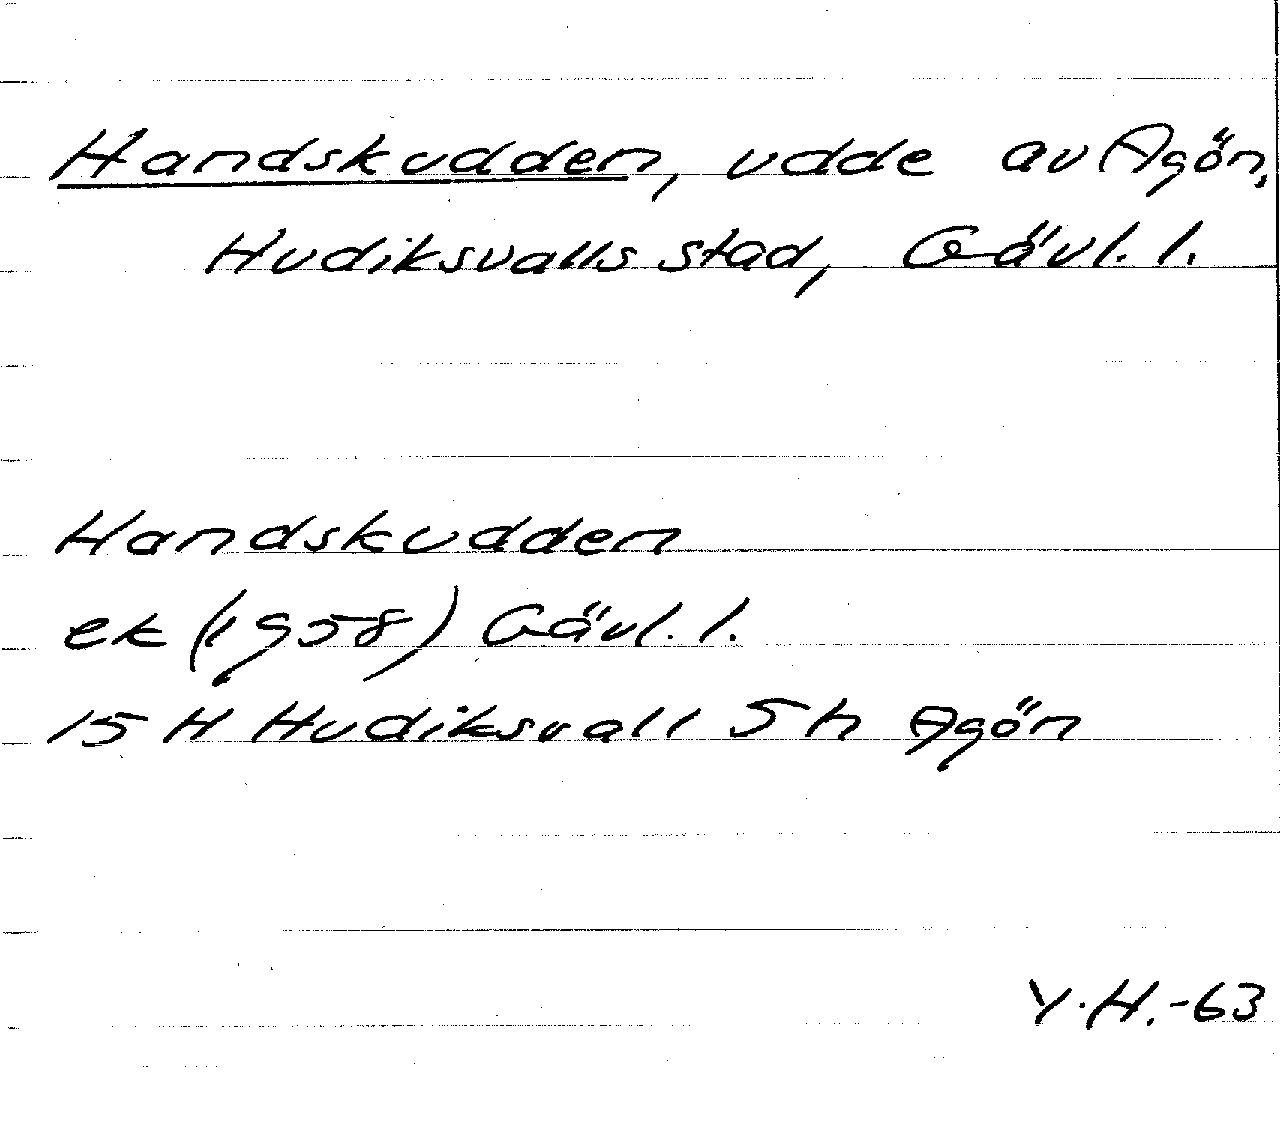 Handskudden, udde av Agön,
Hudiksvalls stad, Gävl. l.
Handskudden
ek (1958) Gävl. l.
15 H Hudiksvall 5 h Agön
Y.H.-63